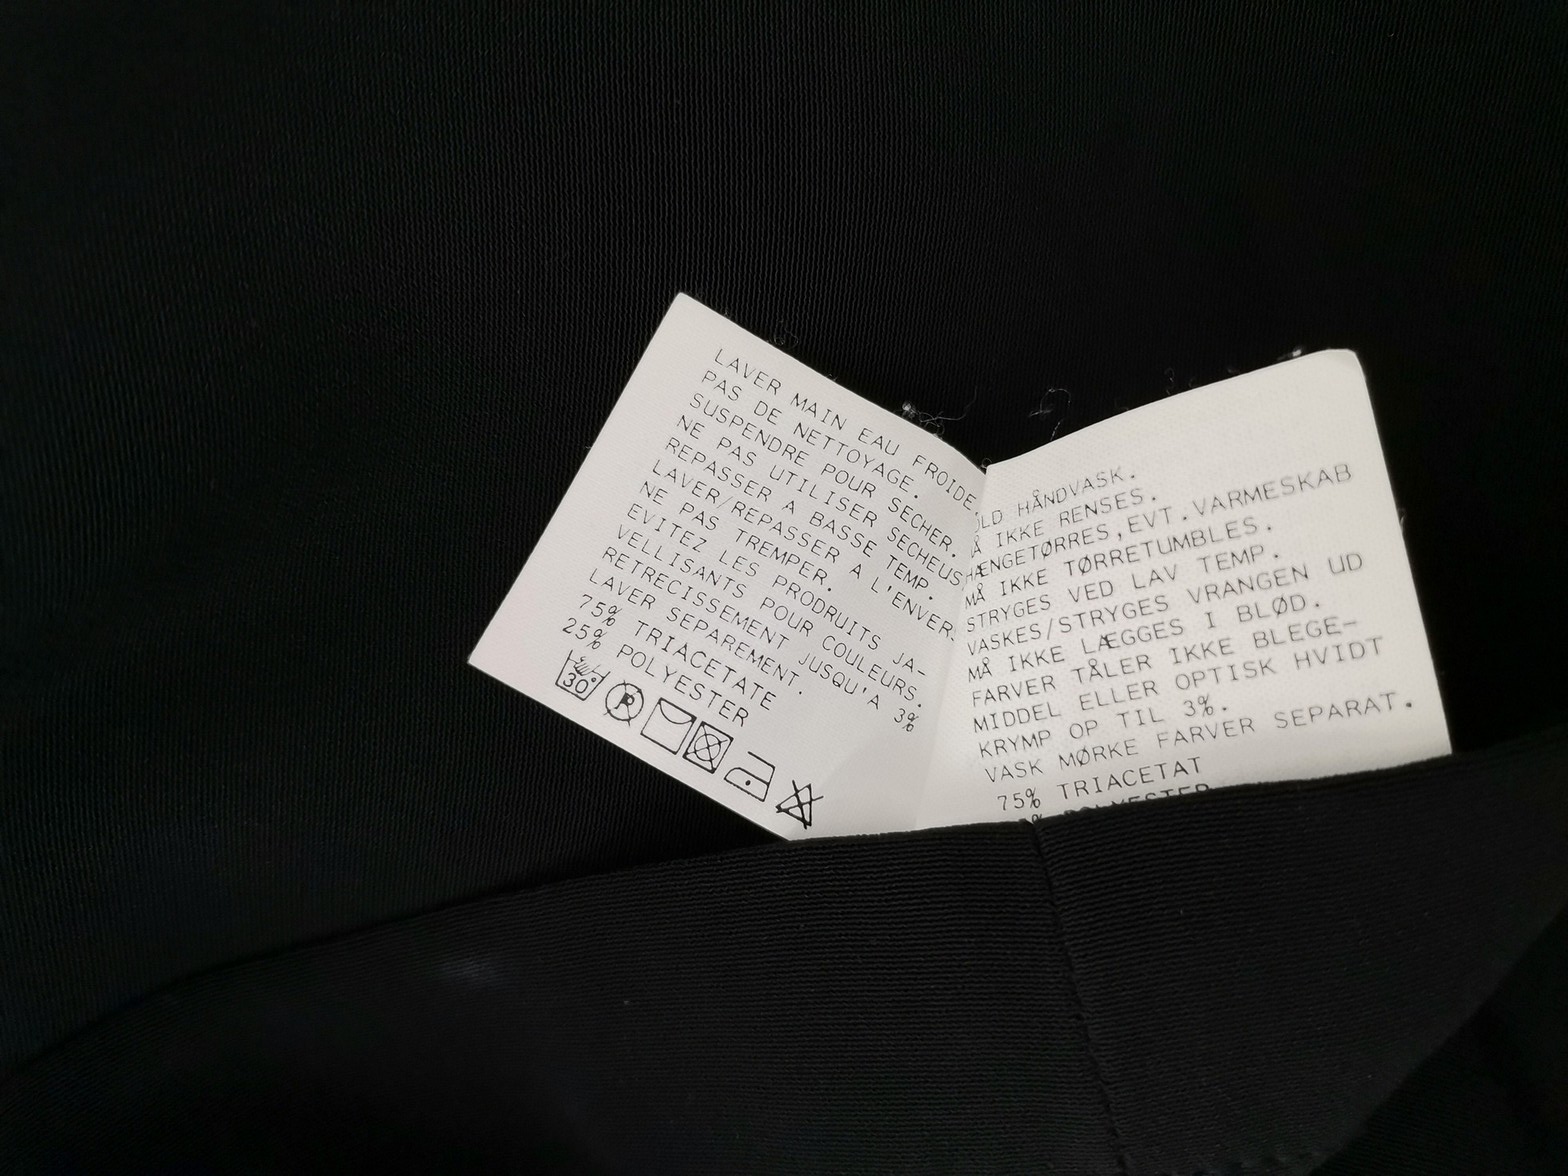 LAVER MAIN EAU FROIDE
PAS DE NETTOYAGE.
SUSPENDRE POUR SECHER.
NE PAS UTILISER SECHEUS
REPASSER A BASSE TEMP.
LAVER/REPASSER A L'ENVER
NE PAS TREMPER.
EVITEZ LES PRODRUITS JA-
VELLISANTS POUR COULEURS.
RETRECISSEMENT JUSQU'A 3%
LAVER SEPAREMENT.
75% TRIACETATE
25% POLYESTER
30
P
OLD HÅNDVASK.
Å IKKE RENSES.
HÆNGETØRRES,EVT.VARMESKAB
MÅ IKKE TØRRETUMBLES.
STRYGES VED LAV TEMP.
VASKES/STRYGES VRANGEN UD
MÅ IKKE LÆGGES I BLØD.
FARVER TÅLER IKKE BLEGE-
MIDDEL ELLER OPTISK HVIDT
KRYMP OP TIL 3%.
VASK MØRKE FARVER SEPARAT.
75% TRIACETAT
% POLYESTER